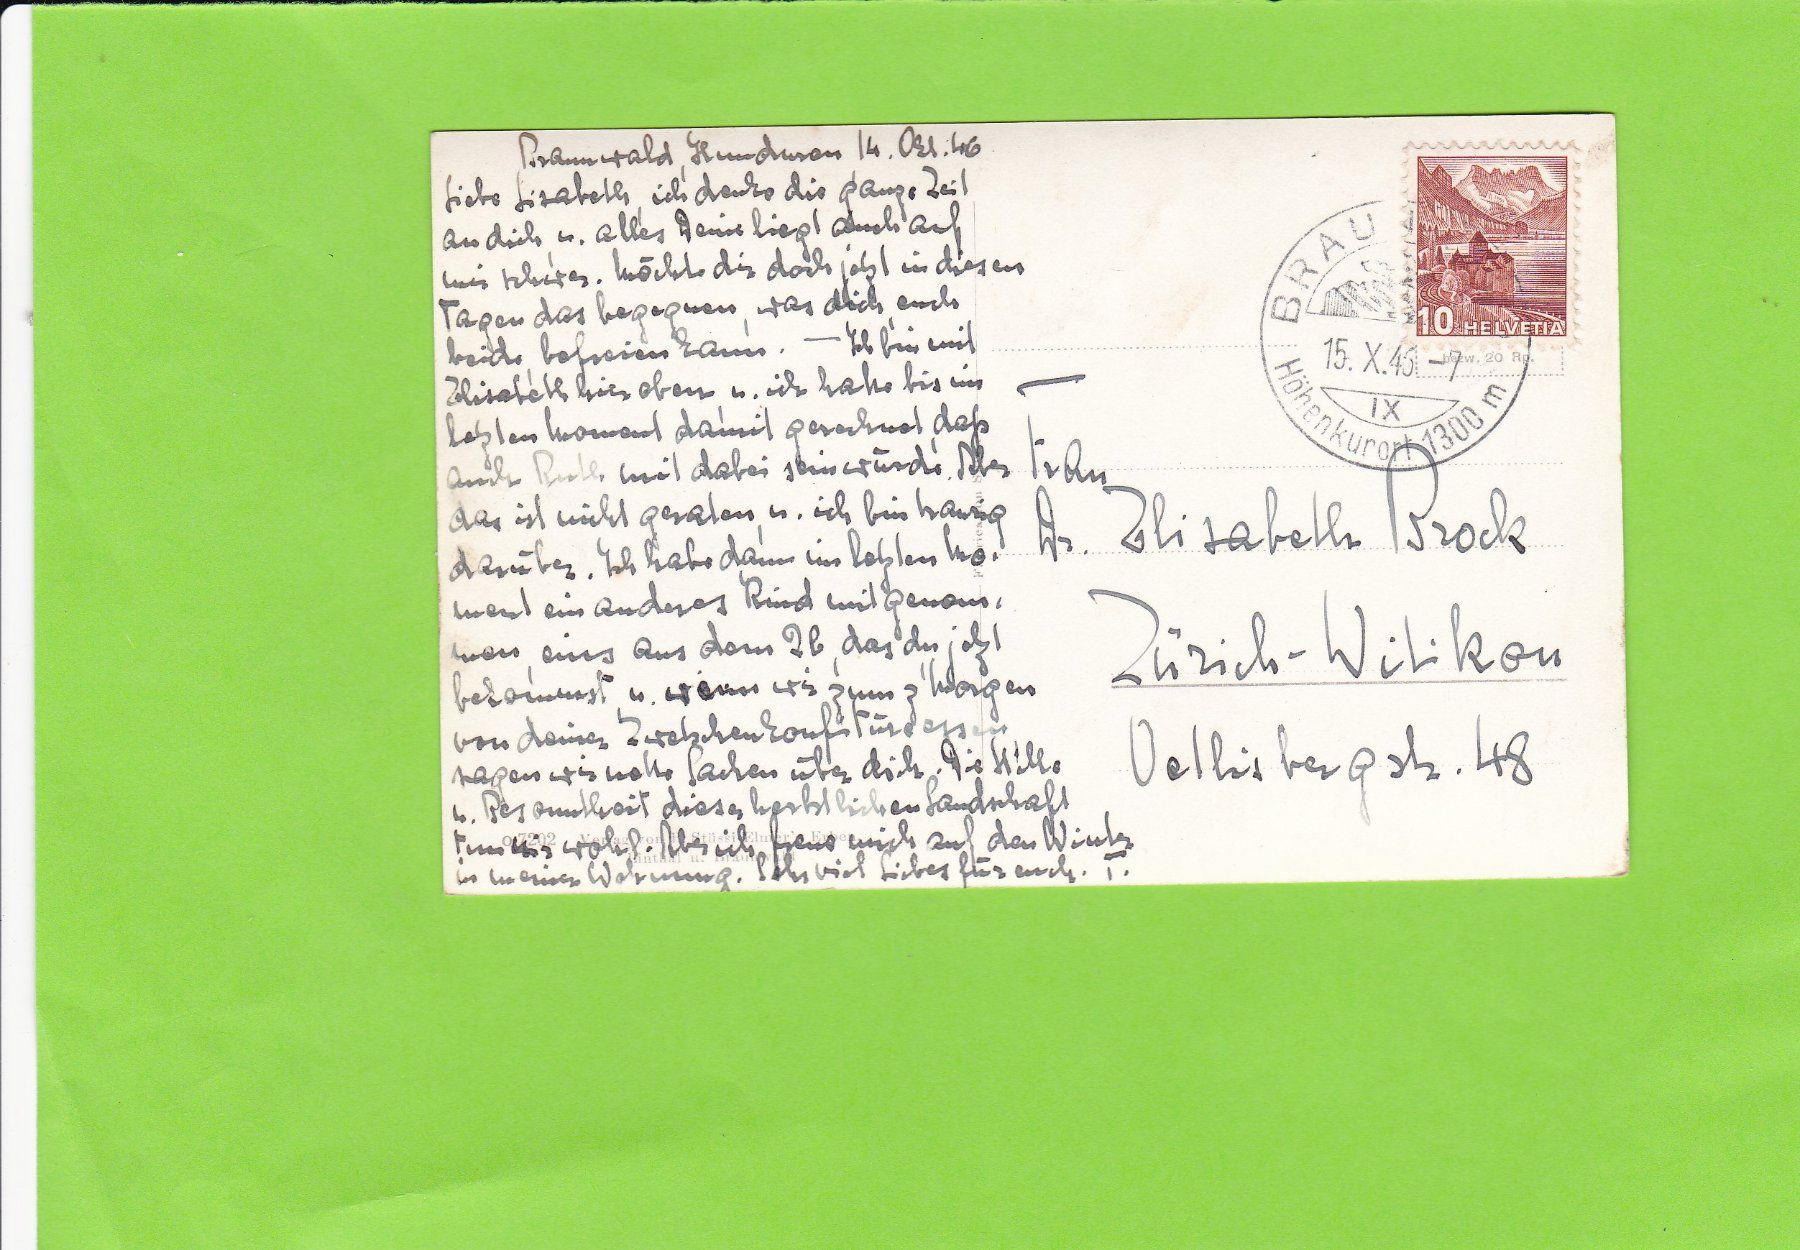 Braunwald, Hunduren 14. Okt. 46
Liebe Lisabeth, ich denke die ganze Zeit
an dich u. alles Deine liegt auch auf
mir schwer. Möchte dir doch jetzt in diesen
Tagen das begegnen, was dich, euch
beide, befreien kann. — Ich bin mit
Elisabeth hier oben u. ich hatte bis im
letzten Moment damit gerechnet, daß
auch Ruth mit dabei sein würde. Aber
das ist nicht geraten, u. ich bin traurig
darüber. Ich habe dann im letzten Mo-
ment ein anderes Kind mitgenom-
men, eins aus dem 2b, das du jetzt
bekommst, u. wenn wir zum z'Morgen
von deiner Zwetschenkonfitüre essen,
sagen wir nette Sachen über dich. Die Stille
u. Besonntheit dieser herbstlichen Landschaft
tun mir wohl. Aber ich freue mich auf den Winter
in meiner Wohnung. Sehr viel Liebes für euch. T.
O 7202 Verlag von Stüssi-Elmer's Erben
Linthal u. Braunwald
BRAU
15. X. 46 - 7
IX
Höhenkurort 1300 m
10 HELVETIA
bezw. 20 Rp.
Frau
Dr. Elisabeth Brock
Zürich-Witikon
Oetlisbergstr. 48